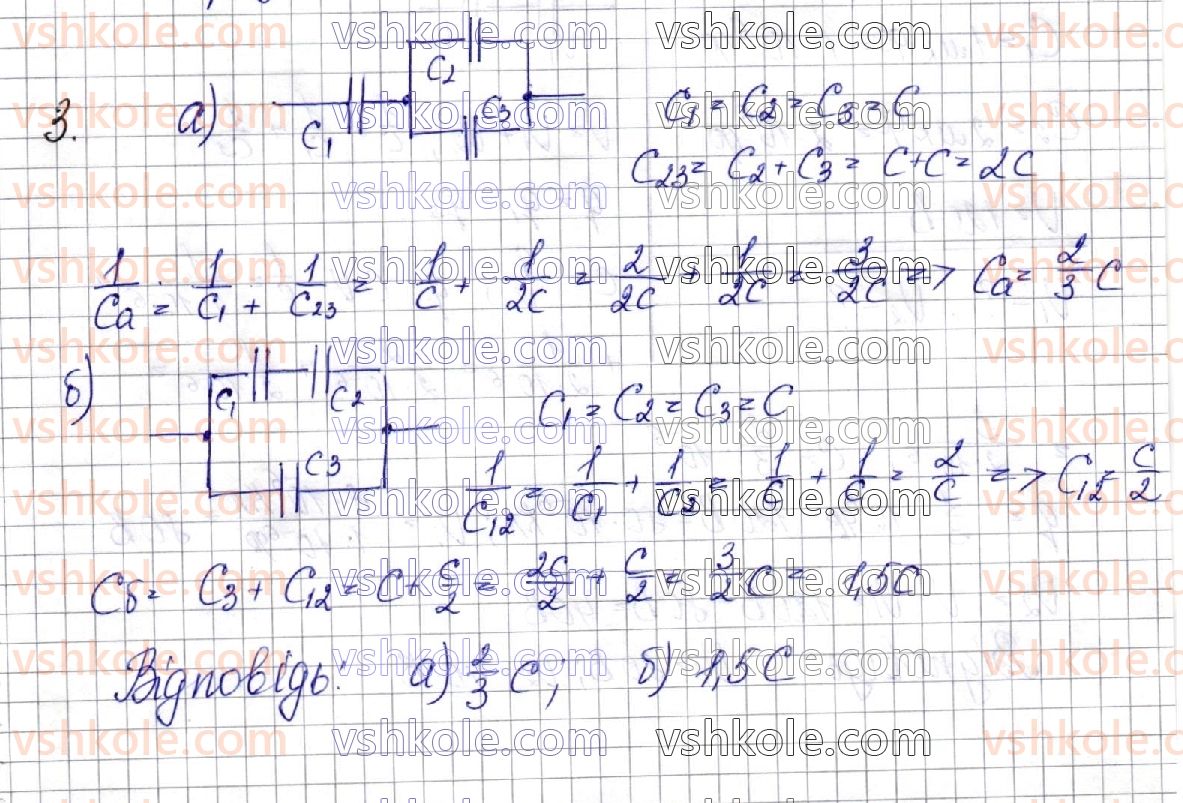 vshkole.com vshkole.com vshkole.com vshkole.com
3. а) C₁ C₂ C₃ C₁ = C₂ = C₃ = C
C₂₃ = C₂ + C₃ = C + C = 2C
1/Cа = 1/C₁ + 1/C₂₃ = 1/C + 1/2C = 2/2C + 1/2C = 3/2C => Cа = 2/3 C
б) C₁ C₂ C₃ C₁ = C₂ = C₃ = C
1/C₁₂ = 1/C₁ + 1/C₂ = 1/C + 1/C = 2/C => C₁₂ = C/2
Cб = C₃ + C₁₂ = C + C/2 = 2C/2 + C/2 = 3/2 C = 1,5C
Відповідь: а) 2/3 C; б) 1,5C
vshkole.com vshkole.com vshkole.com vshkole.com